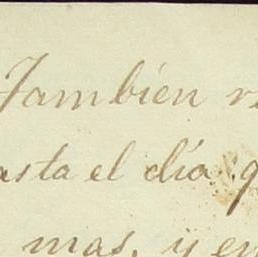 También
asta el día
mas, y en